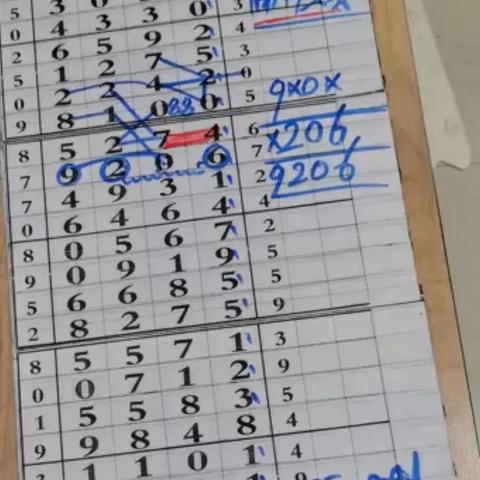 5 3 0 3
0 4 3 3 0 4
2 6 5 9 2 3
5 1 2 7 5 0
0 2 2 4 2 5
9 8 1 0 0
88
9x0x
8 5 2 7 4 6
x206
7 9 2 0 6 7
9206
7 4 9 3 1 2
0 6 4 6 4 4
8 0 5 6 7 2
9 0 9 1 9 5
5 6 6 8 5 5
2 8 2 7 5 9
8 5 5 7 1 3
0 0 7 1 2 9
1 5 5 8 3 5
9 9 8 4 8 4
1 1 0 1 4